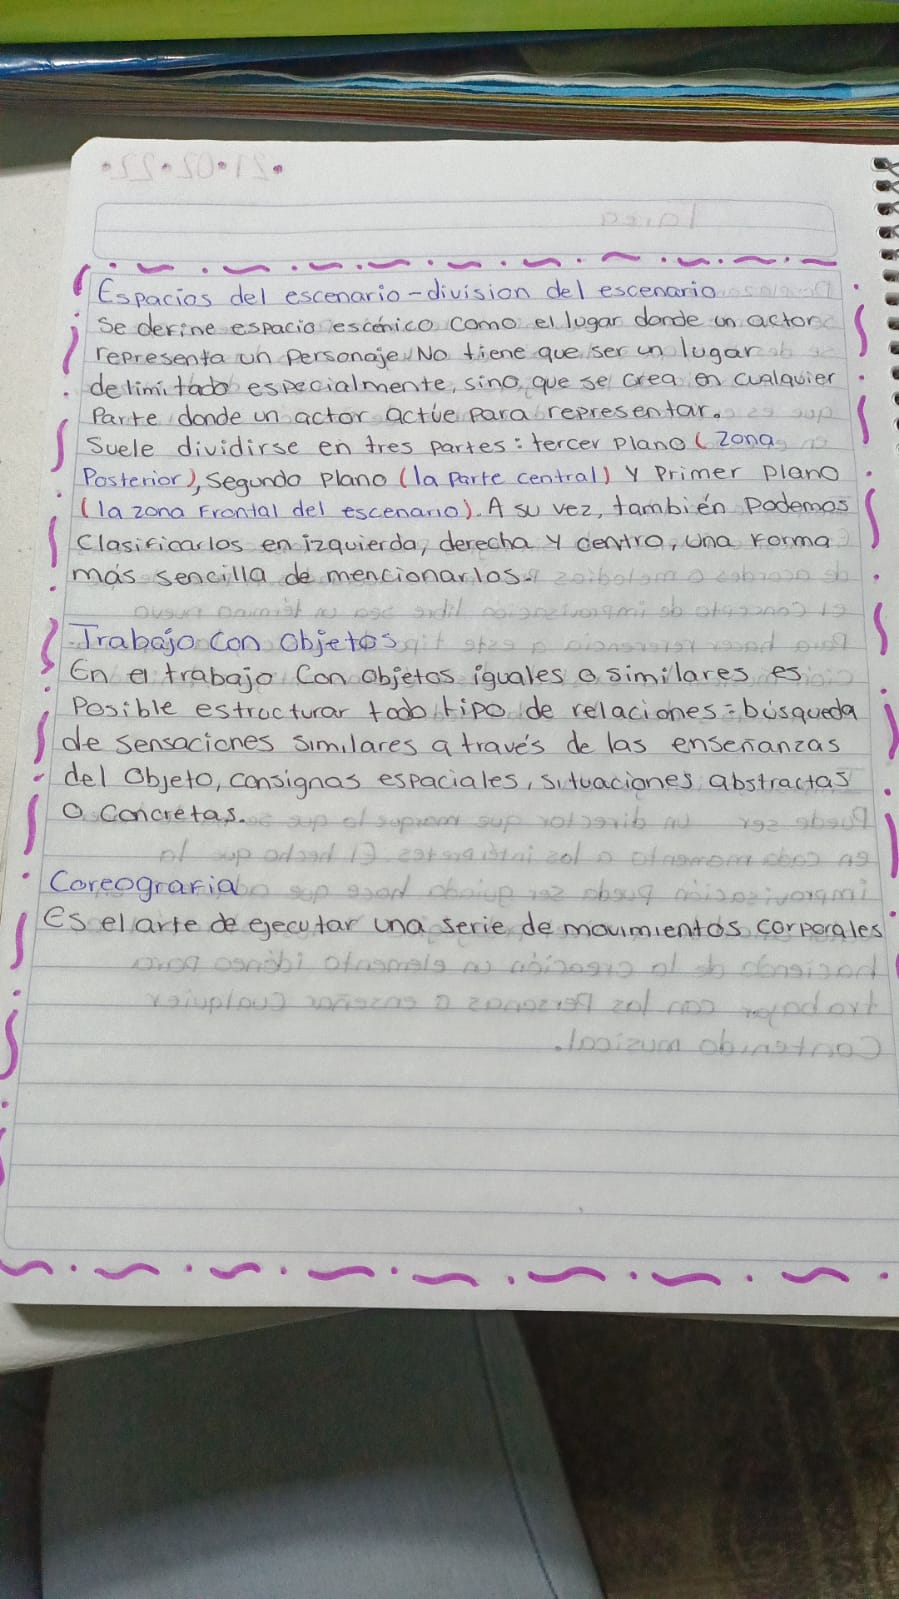 Espacios del escenario-division del escenario
Se define espacio escénico como el lugar donde un actor
representa un personaje. No tiene que ser un lugar
delimitado especialmente, sino que se crea en cualquier
Parte donde un actor actúe para representar.
Suele dividirse en tres partes: tercer plano (Zona
Posterior), Segundo plano (la parte central) y Primer plano
(la zona Frontal del escenario). A su vez, también Podemos
Clasificarlos en izquierda, derecha y centro, una Forma
más sencilla de mencionarlos.
Trabajo con Objetos
En el trabajo Con objetos iguales o similares es
Posible estructurar todo tipo de relaciones: búsqueda
de sensaciones similares a través de las enseñanzas
del Objeto, consignas espaciales, situaciones abstractas
o concretas.
Coreografia
Es el arte de ejecutar una serie de movimientos corporales